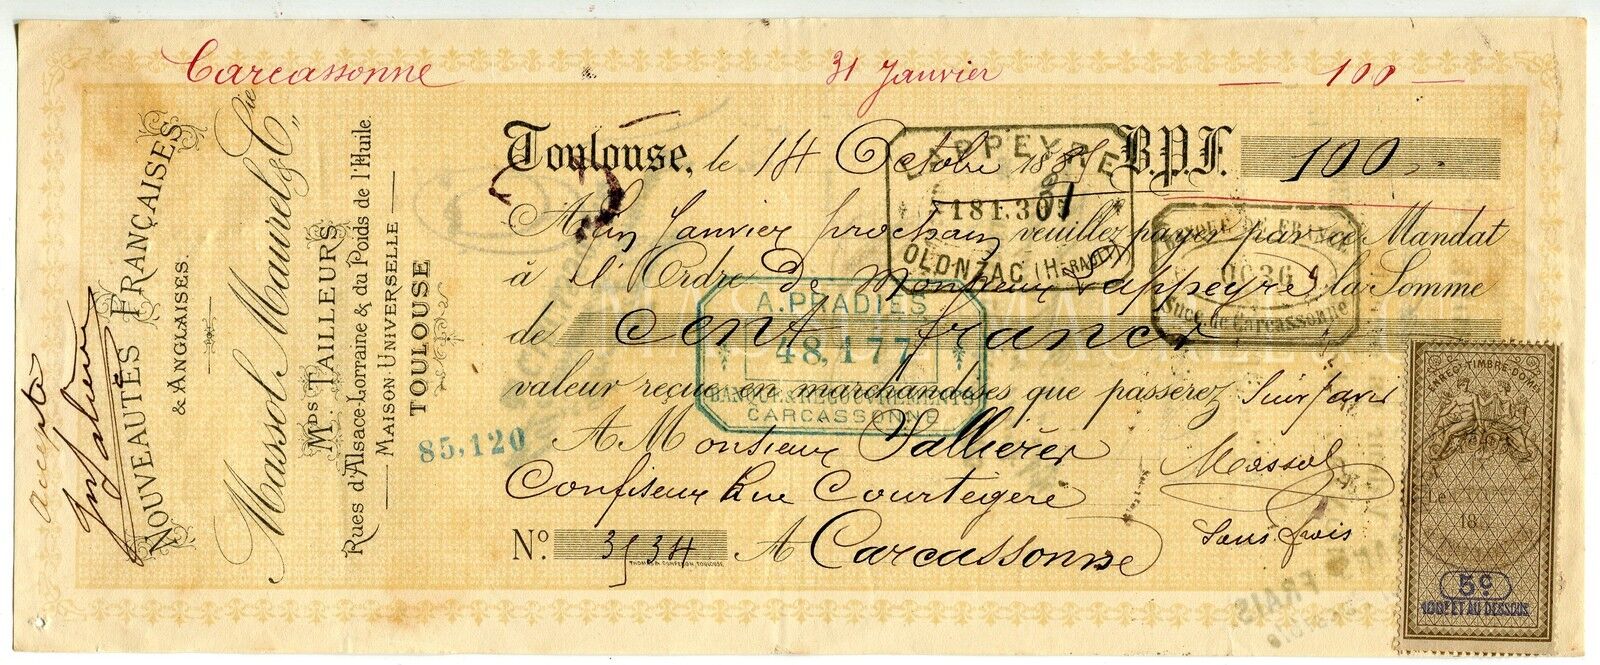 Carcassonne 31 Janvier 100
Toulouse, le 14 Octobre 188 B.P.F. 100
A fin Janvier prochain veuillez payer par ce Mandat
à l'Ordre de Monsieur Lappeyre la Somme
de Cent francs
valeur reçue en marchandises que passerez Suivant avis
A Monsieur Vallières
Confiseur Rue Courtejère
No. 3534 A Carcassonne
Massol
Sans frais
THOMAS & COMPERON, TOULOUSE
accepté
NOUVEAUTÉS FRANÇAISES
& ANGLAISES.
Massol Maurel & Cie
MDS TAILLEURS
Rues d'Alsace-Lorraine & du Poids de l'Huile.
MAISON UNIVERSELLE
TOULOUSE
85,120
LAPPEYRE
181.305
OLONZAC (HÉRAULT)
A. PRADIES
48,177
BANQUE & RECOUVREMENTS
CARCASSONNE
BANQUE DE FRANCE
Succ. de Carcassonne
ENREGT TIMBRE-DOM
Le
18
5c
100f ET AU DESSOUS
FRAIS